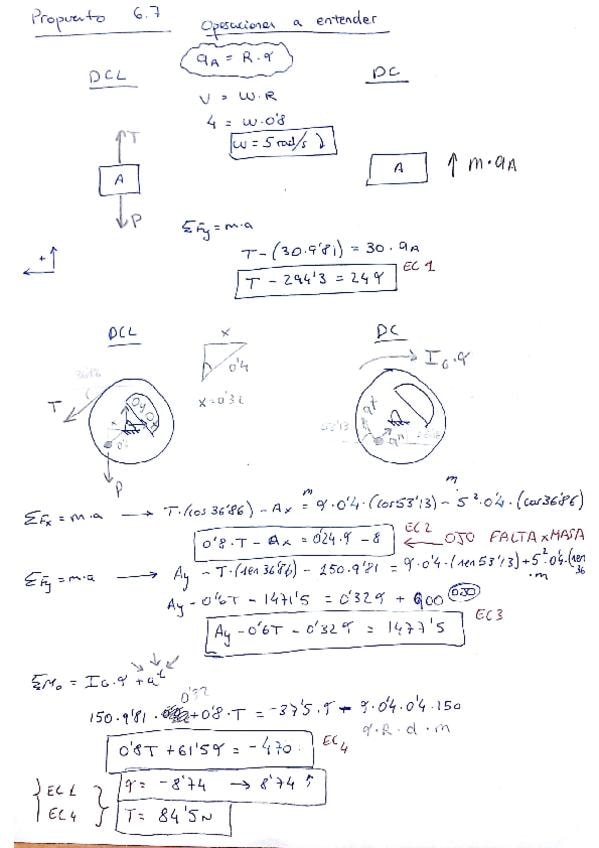 Propuesto 6.7 Operaciones a entender
DCL
aA = R·α
DC
V = W·R
4 = W·0'8
W = 5 rad/s
T
A
P
A
m·aA
ΣFy = m·a
T - (30·9'81) = 30·aA
T - 294'3 = 24α EC 1
+
DCL
x
0'4
x = 0'32
DC
IG·α
36'86
T
Oy
Ox
P
at
an
53'13
m m
ΣFx = m·a → T·(cos 36'86) - Ax = α·0'4·(cos 53'13) - 5²·0'4·(cos 36'86)
0'8·T - Ax = 0'24·α - 8 EC2 ← OJO FALTA x MASA
ΣFy = m·a → Ay - T·(sen 36'86) - 150·9'81 = α·0'4·(sen 53'13) + 5²·0'4·(sen 36
·m
Ay - 0'6T - 1471'5 = 0'32α + 900 OJO
Ay - 0'6T - 0'32α = 1477'5 EC3
ΣMo = IG·α + at
0'32
150·9'81· + 0'8·T = -37'5·α - α·0'4·0'4·150
α·R·d·m
0'8T + 61'5α = -470 EC4
EC1
EC4
α = -8'74 → 8'74
T = 84'5N